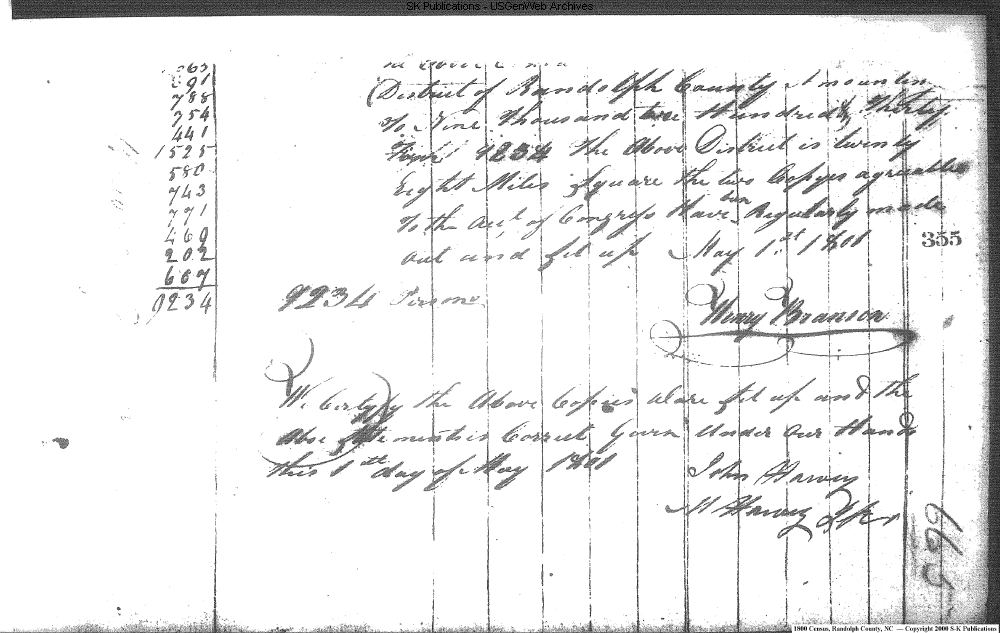 SK Publications - USGenWeb Archives
691
788
754
441
1525
580
743
771
469
202
667
9234
District of Randolph County Amounting
To Nine Thousand two Hundred & Thirty
9234 the Above District is twenty
Eight Miles Square the two Copyes agreeable
To the Act, of Congress Have ben Regularly made
out and Set up May 1.st 1801
355
9234 Persons
Henry Branson
We Certyfy the Above Copies Ware Set up and the
Above is Correct Given Under Our Hands
this 1th day of May 1801
John Harvey
M Harvey
665
1800 Census, Randolph County, NC — Copyright 2000 S-K Publications